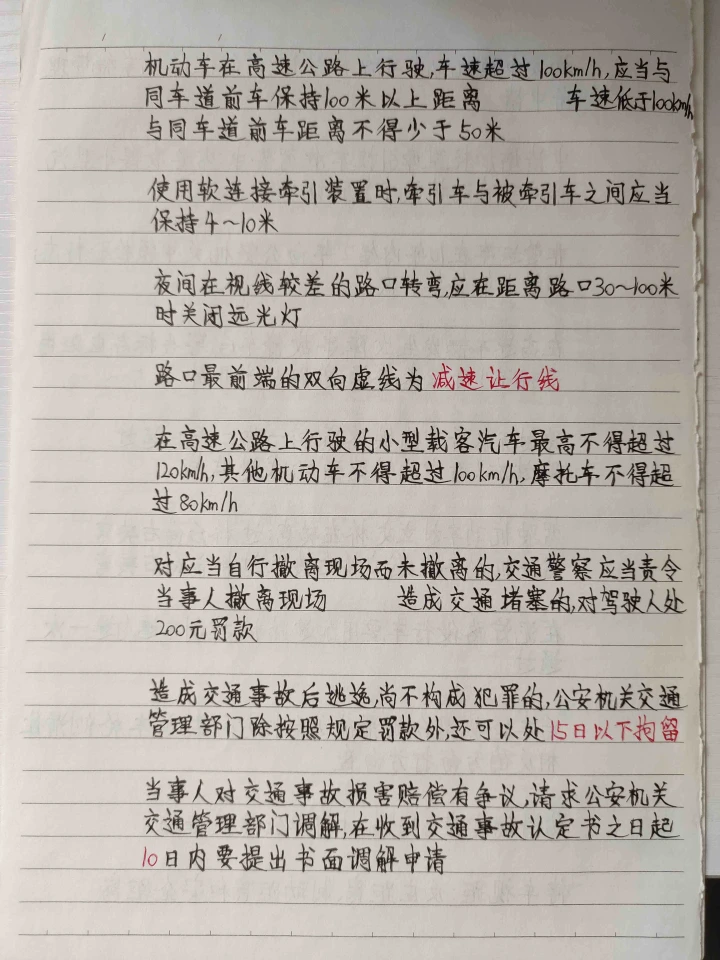 机动车在高速公路上行驶,车速超过100km/h,应当与
同车道前车保持100米以上距离 车速低于100km/h
与同车道前车距离不得少于50米
使用软连接牵引装置时,牵引车与被牵引车之间应当
保持4~10米
夜间在视线较差的路口转弯,应在距离路口30~100米
时关闭远光灯
路口最前端的双向虚线为减速让行线
在高速公路上行驶的小型载客汽车最高不得超过
120km/h,其他机动车不得超过100km/h,摩托车不得超
过80km/h
对应当自行撤离现场而未撤离的,交通警察应当责令
当事人撤离现场 造成交通堵塞的,对驾驶人处
200元罚款
造成交通事故后逃逸,尚不构成犯罪的,公安机关交通
管理部门除按照规定罚款外,还可以处15日以下拘留
当事人对交通事故损害赔偿有争议,请求公安机关
交通管理部门调解,在收到交通事故认定书之日起
10日内要提出书面调解申请